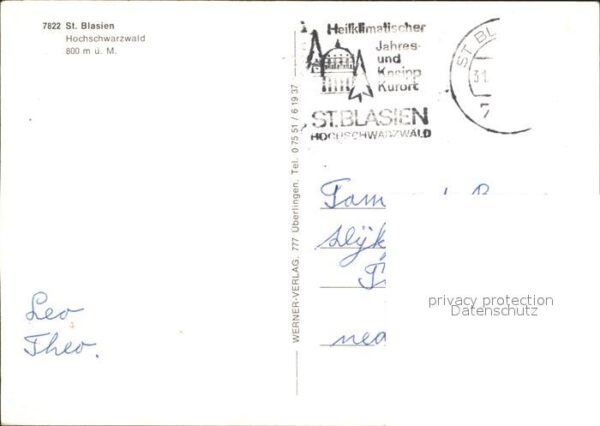 7822 St. Blasien
Hochschwarzwald
800 m ü. M.
Heilklimatischer
Jahres-
und
Kneipp
Kurort
ST. BLASIEN
HOCHSCHWARZWALD
ST BL
31.
7
WERNER-VERLAG. 777 Überlingen. Tel. 0 75 51 / 6 19 37
Fam
Leo
Theo.
privacy protection
Datenschutz